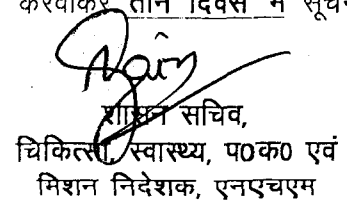 करवाकर तीन दिवस में सूचन
शासन सचिव,
चिकित्सा, स्वास्थ्य, प0क0 एवं
मिशन निदेशक, एनएचएम